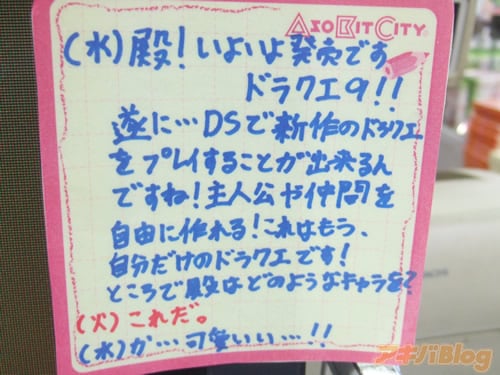 ASOBITCITY
(水)殿!いよいよ発売です
ドラクエ9!!
遂に…DSで新作のドラクエ
をプレイすることが出来るん
ですね!主人公や仲間を
自由に作れる!これはもう、
自分だけのドラクエです!
ところで殿はどのようなキャラを?
(火)これだ。
(水)か…可愛いい…!!
アキバBlog